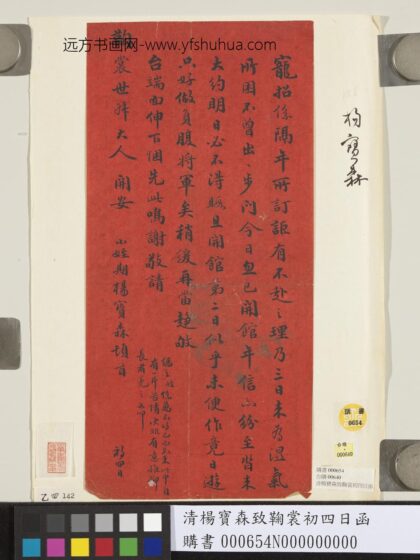 远方书画网-www.yfshuhua.com
楊寶森
寵招係隔年所訂詎有不赴之理乃三日來為溼氣
所困不曾出一步門今日忽已開館年信紛至皆未
大約明日必不得暇且開館第二日似乎未便作竟日遊
只好做負腹將軍矣稍緩再當趨敂
台端面伸下悃先此鳴謝敬請
鞠裳世丈大人 開安
楊寶森頓首 初四日
購書
0654
000640
購書 000654
乙四 142
清楊寶森致鞠裳初四日函
購書 000654N000000000